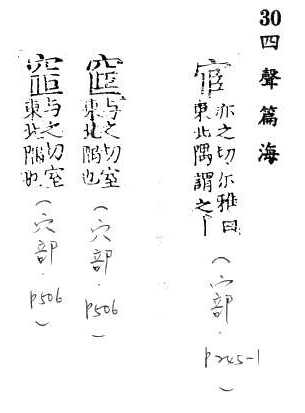 30四聲篇海
宧
亦之切尔雅曰
東北隅謂之丨
(宀部．
P245-1)
与之切室
東北隅也
(穴部．
P506)
与之切室
東北隅也
(穴部．
P506)